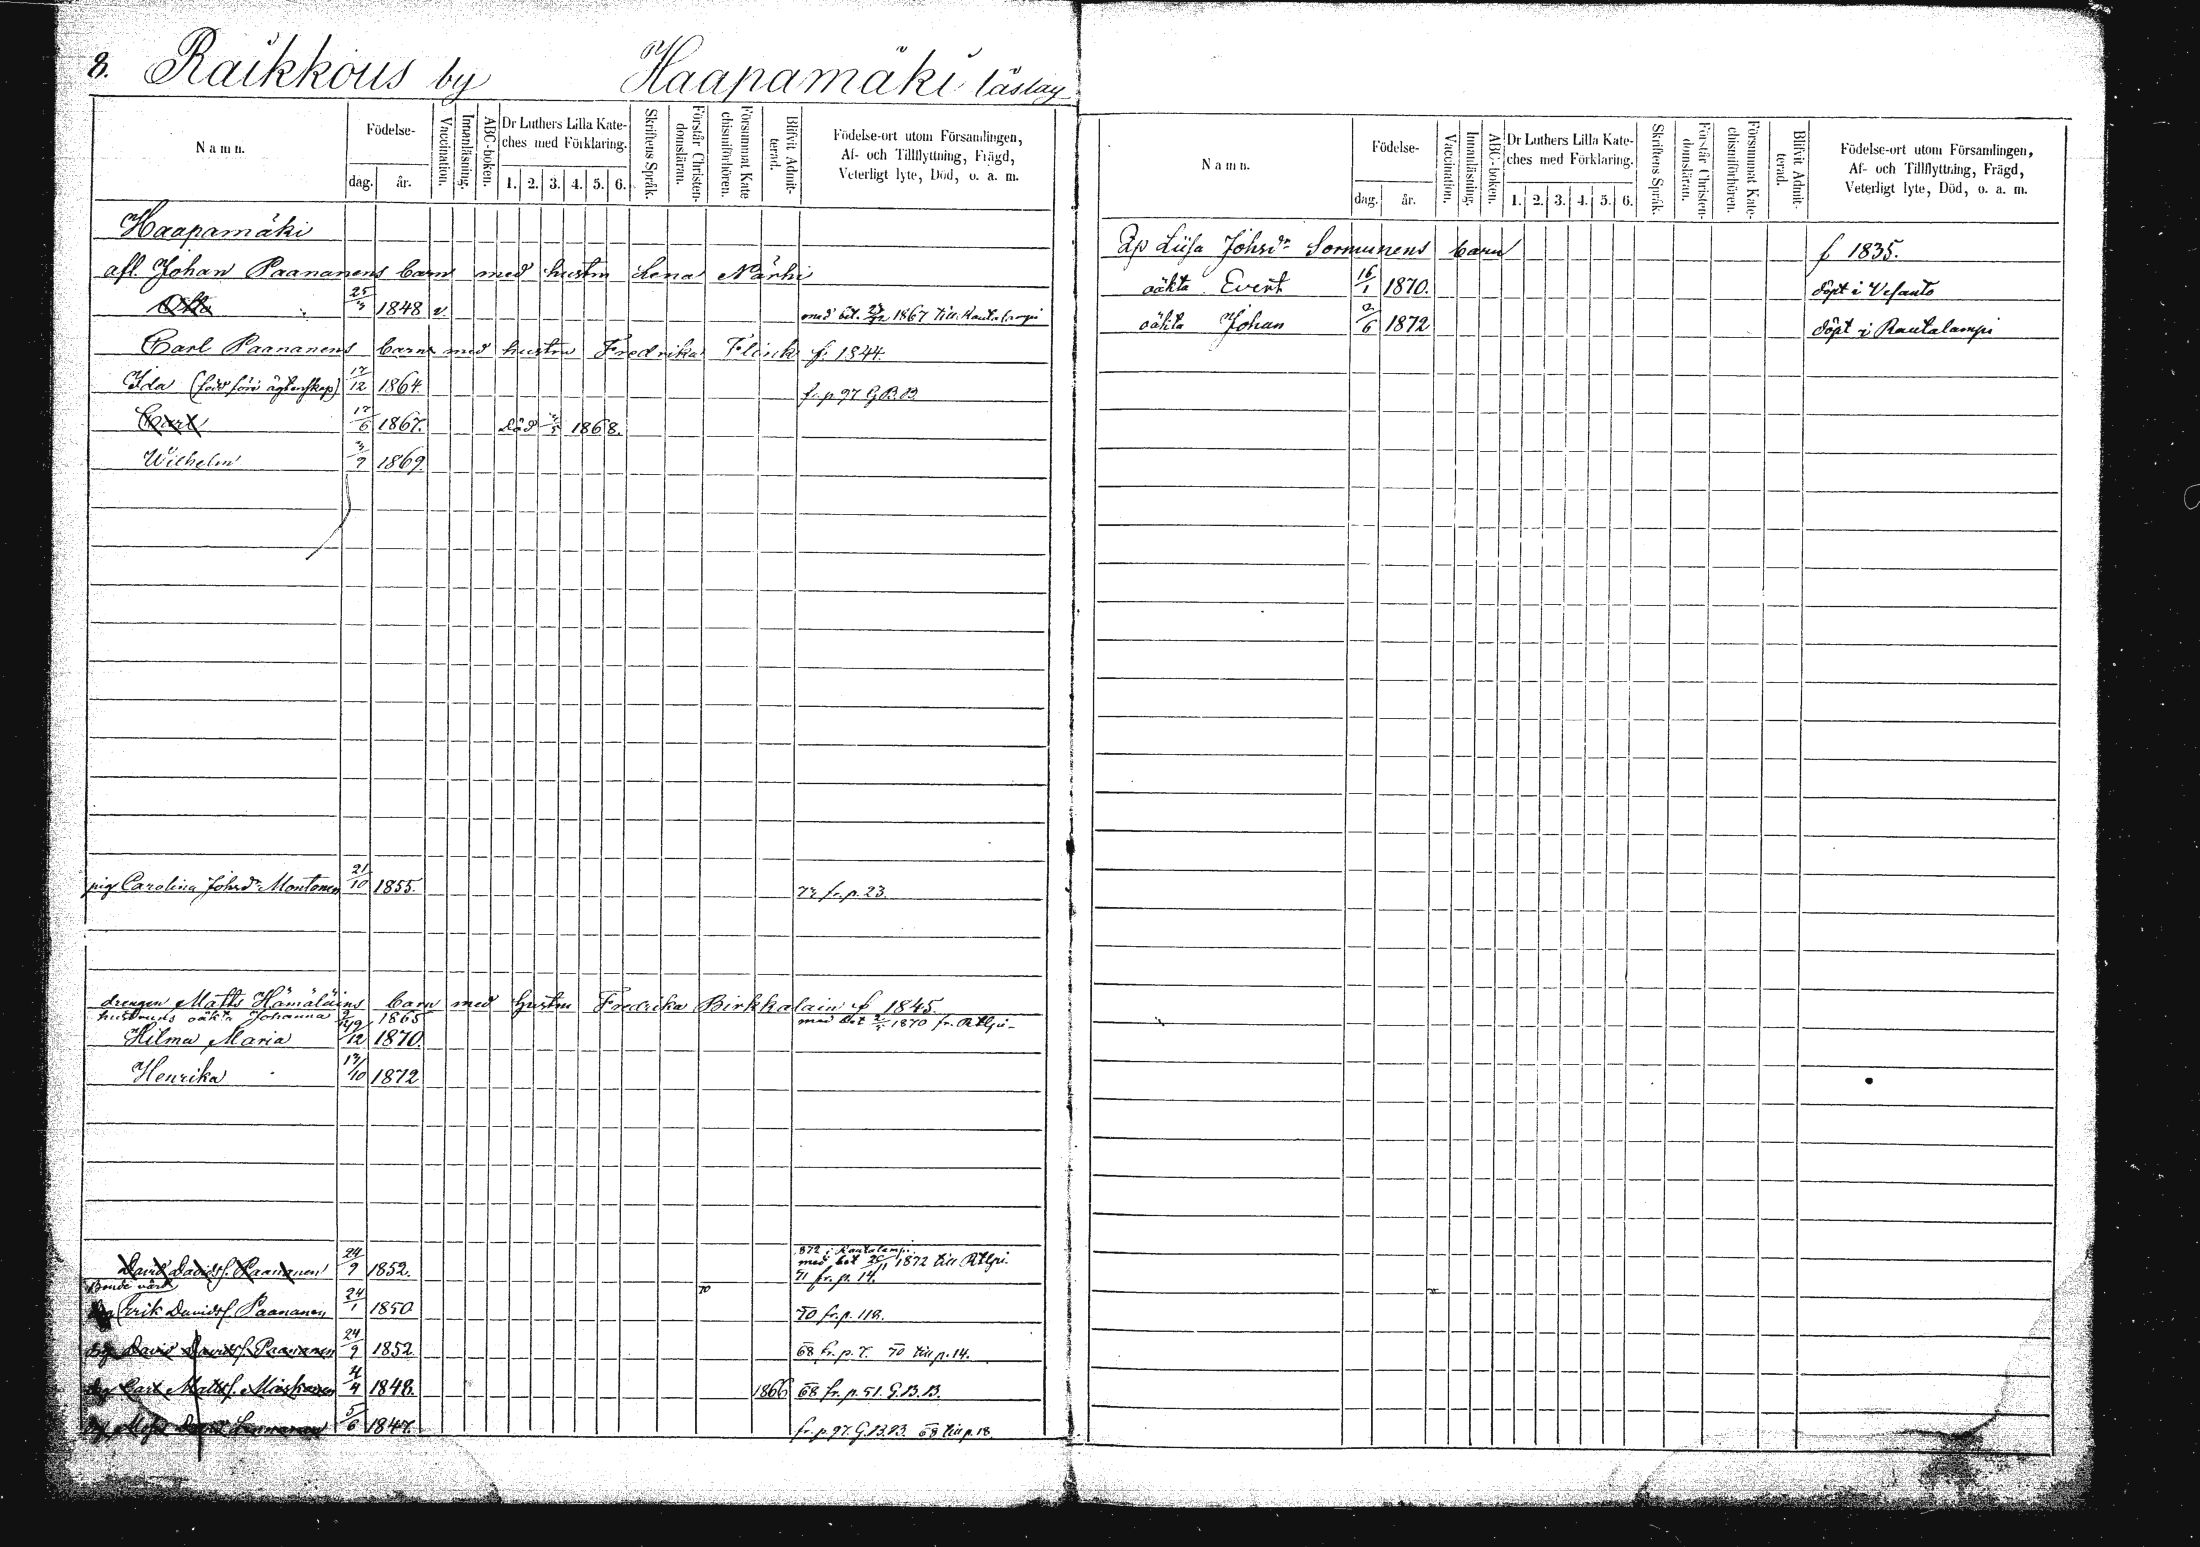 8. Raikkous by Haapamäki läslag
Namn.
Födelse-
dag. år.
Vaccination.
Innanläsning.
ABC-boken.
Dr Luthers Lilla Kate-
ches med Förklaring.
1. 2. 3. 4. 5. 6.
Skriftens Språk.
Förstår Christen-
domsläran.
Försummat Kate
chismiförhören.
Blifvit Admit-
terad.
Födelse-ort utom Församlingen,
Af- och Tillflyttning, Frägd,
Veterligt lyte, Död, o. a. m.
Haapamäki
afl. Johan Paananens barn med hustru Lena Närhi
Otto 25/3 1848 v. med bet. 1867 till Rautalampi
Carl Paananens barn med hustru Fredrika Flinck f. 1844.
Ida (född före ägtenskap) 17/12 1864. fr. p 97 G.B.B.
Carl 17/6 1867. Död 1868.
Wilhelm 3/9 1869
pig Carolina Johsdr Montonen 21/10 1855. 72 fr. p. 23.
drengen Matts Hämäläins barn med hustru Fredrika Birkkalain f 1845.
hustruns oäkta Johanna 1865 med bet 1870 fr. Rtlpi
Hilma Maria 1870.
Henrika 1872
872 i Rautalampi
David Davids. Paananen 24/9 1852. med bet 1872 till Rtlpi.
71 fr. p. 14.
Bonde
Erik Davids. Paananen 24/1 1850 70 70 fr. p. 118.
David Davids. Paananen 24/9 1852 68 fr. p. 7. 70 till p. 14.
Carl Matts. 1848. 1866 68 fr. p. 51. G.B.B.
5/6 1847. fr. p 97. G.B.B. 68 till p. 18.
Namn.
Födelse-
dag. år.
Vaccination.
Innanläsning.
ABC-boken.
Dr Luthers Lilla Kate-
ches med Förklaring.
1. 2. 3. 4. 5. 6.
Skriftens Språk.
Förstår Christen-
domsläran.
Försummat Kate-
chismiförhören.
Blifvit Admit-
terad.
Födelse-ort utom Församlingen,
Af- och Tillflyttning, Frägd,
Veterligt lyte, Död, o. a. m.
Liisa Johsdr Sormunens barn f 1835.
oäkta Evert 16/1 1870. döpt i Vesanto
oäkta Johan 1872 döpt i Rautalampi